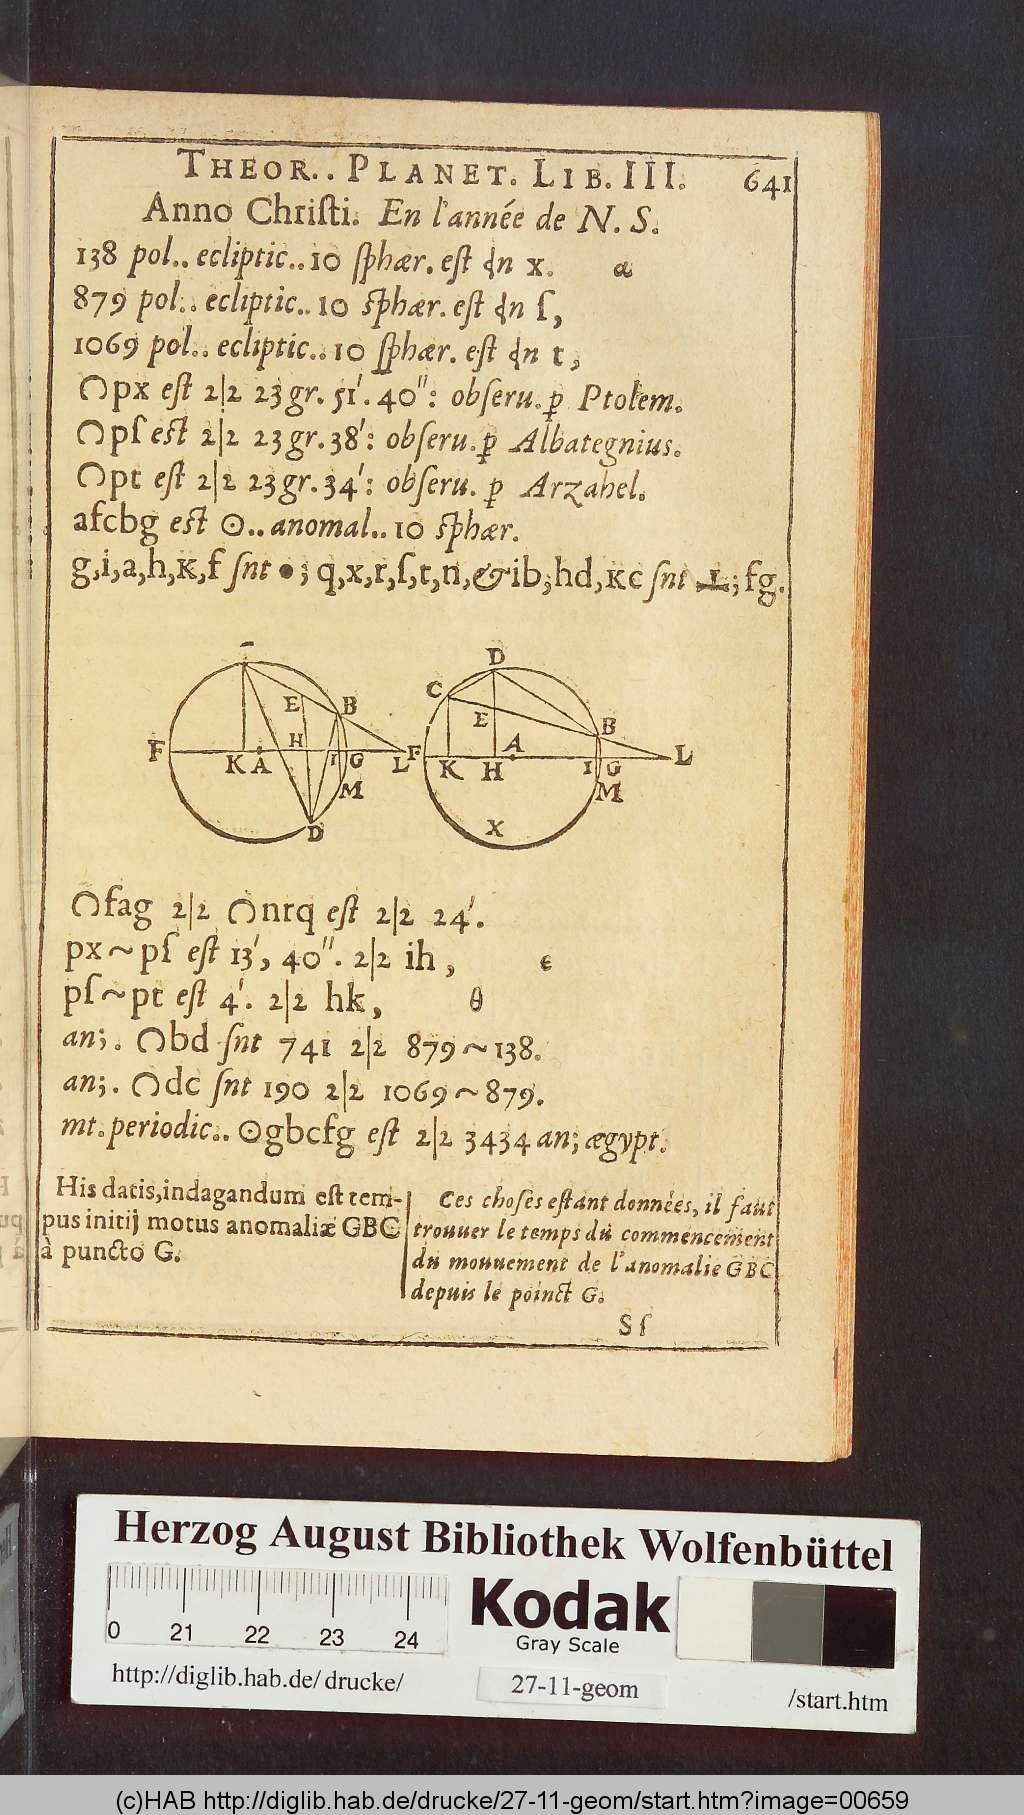 THEOR.. PLANET. LIB. III. 641
Anno Chriſti. En l'année de N. S.
138 pol.. ecliptic.. 10 ſphær. eſt ɖn x. α
879 pol.. ecliptic.. 10 ſphær. eſt ɖn ſ,
1069 pol.. ecliptic.. 10 ſphær. eſt ɖn t,
⌒px eſt 2|2 23 gr. 51'. 40'': obſeru. ꝑ Ptolem.
⌒pſ eſt 2|2 23 gr. 38': obſeru. ꝑ Albategnius.
⌒pt eſt 2|2 23 gr. 34': obſeru. ꝑ Arzahel.
afcbg eſt ⊙.. anomal.. 10 ſphær.
g,i,a,h,k,f ſnt •; q,x,r,ſ,t,n,&ib,hd,kc ſnt ⊥; fg.
E B F K A H I G L M D
D C E B F K H A I G L M X
⌒fag 2|2 ⌒nrq eſt 2|2 24'.
px~pſ eſt 13', 40''. 2|2 ih, ϵ
pſ~pt eſt 4'. 2|2 hk, θ
an;. ⌒bd ſnt 741 2|2 879~138.
an;. ⌒dc ſnt 190 2|2 1069~879.
mt. periodic.. ⊙gbcfg eſt 2|2 3434 an; ægypt.
His datis, indagandum eſt tem-
pus initij motus anomaliæ GBC
à puncto G.
Ces choſes eſtant données, il faut
trouuer le temps du commencement
du mouuement de l'anomalie GBC
depuis le poinct G.
Sſ
Herzog August Bibliothek Wolfenbüttel
0 21 22 23 24
Kodak
Gray Scale
http://diglib.hab.de/drucke/ 27-11-geom /start.htm
(c)HAB http://diglib.hab.de/drucke/27-11-geom/start.htm?image=00659